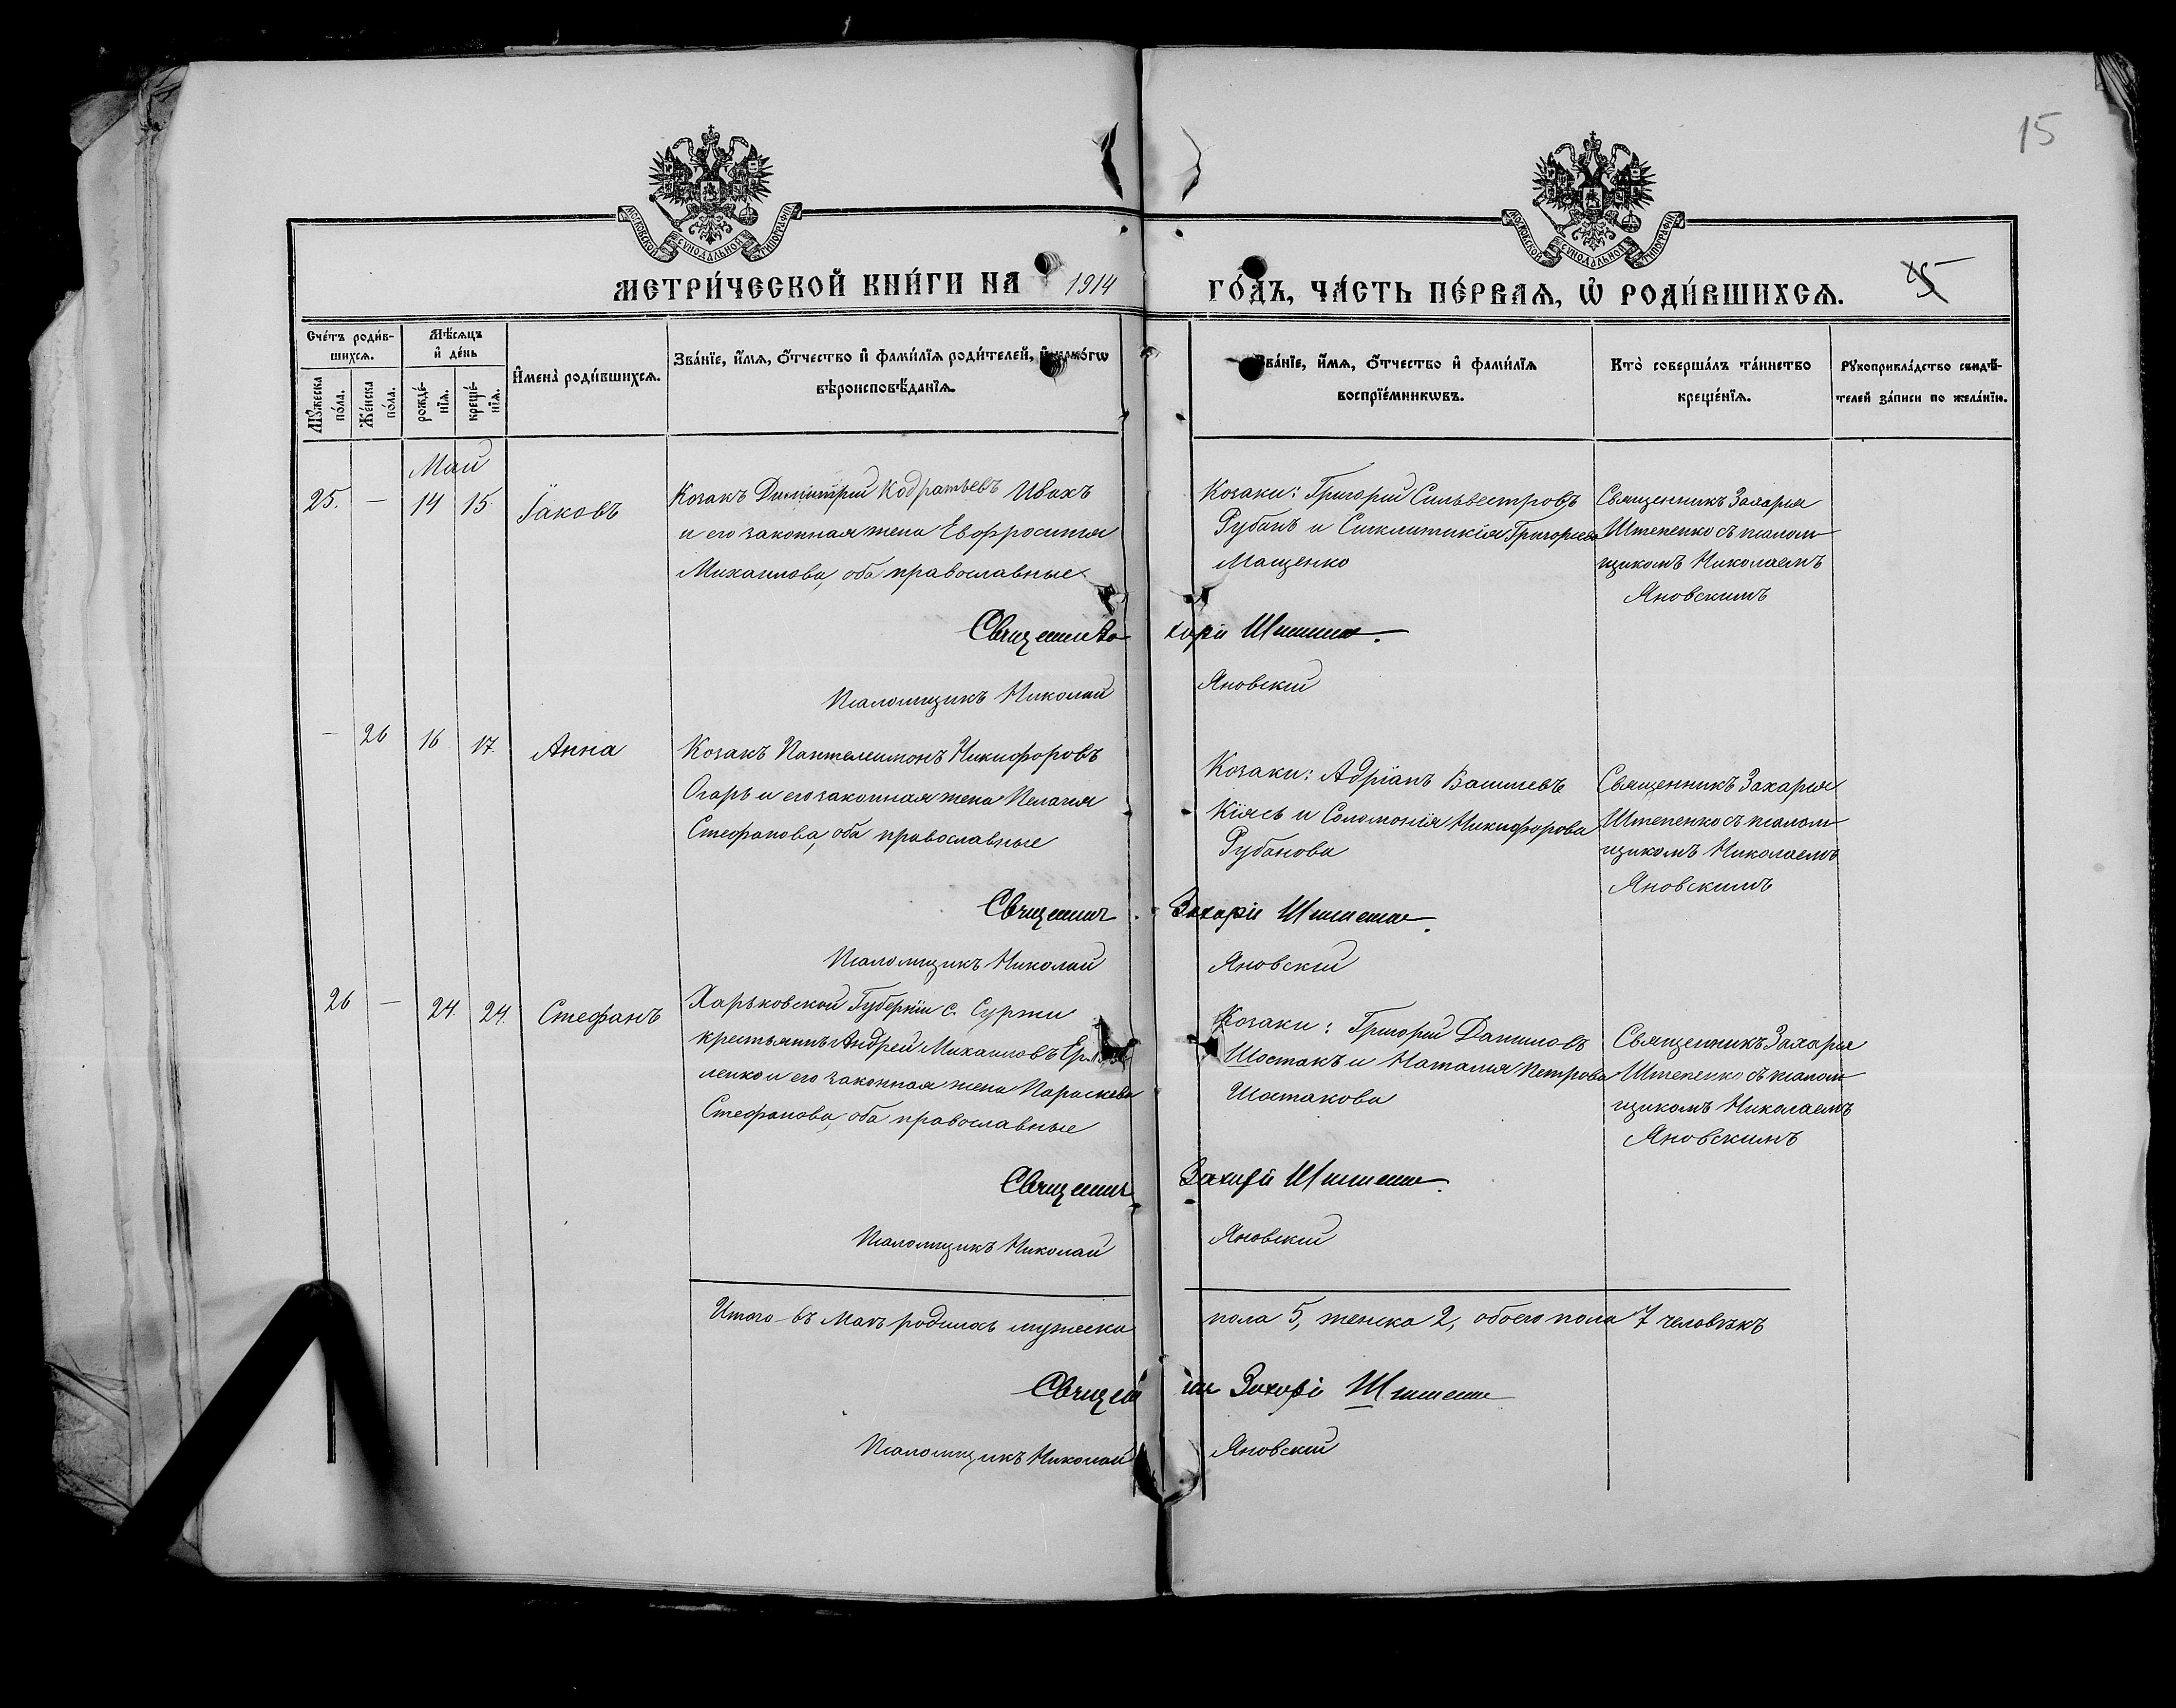 15
МОСКОВСКОЙ СѴНОДАЛЬНОЙ ТИПОГРАФІИ
МОСКОВСКОЙ СѴНОДАЛЬНОЙ ТИПОГРАФІИ
МЕТРИ́ЧЕСКОЙ КНИ́ГИ НА 1914 ГО́ДЪ, ЧА́СТЬ ПЕ́РВАЯ, Ѡ РОДИ́ВШИХСЯ.
Сче́тъ роди́в-
шихся.
Мѣ́сяцъ
и де́нь
Мꙋ́жеска по́ла.
Же́нска по́ла.
рожде́-нїя.
креще́-нїя.
Имена̀ роди́вшихся.
Зва́нїе, и́мя, о́тчество и фами́лїя роди́телей, и како́гѡ
вѣроисповѣ́данїя.
Зва́нїе, и́мя, о́тчество и фами́лїя
воспрїе́мникѡвъ.
Кто̀ соверша́лъ та́инство
креще́нїя.
Рꙋкоприкла́дство свидѣ́-
телей за́писи по жела́нїю.
Май
25. — 14 15. Іаковъ
Козакъ Димитрий Кодратьевъ Ивахъ
и его законная жена Евфросинія
Михаилова, оба православные
Козаки: Григорий Сильвестровъ
Рубанъ и Синклитикія Григорьева
Мащенко
Священникъ Захарія
Штепенко съ псалом
щикомъ Николаемъ
Яновскимъ
Захарій
Псаломщикъ Николай Яновский
— 26 16 17. Анна
Козакъ Пантелеимонъ Никифоровъ
Огарь и его законная жена Пелагія
Стефанова, оба православные
Козаки: Адріанъ Василіевъ
Кіясь и Соломонія Никифорова
Рубанова
Священникъ Захарія
Штепенко съ псалом
щикомъ Николаемъ
Яновскимъ
Захарій
Псаломщикъ Николай Яновский
26 — 24. 24. Стефанъ
Харьковской Губерніи с. Суржи
крестьянинъ Андрей Михаиловъ
ленко и его законная жена Параскева
Стефанова, оба православные
Козаки: Григорий Даниловъ
Шостакъ и Наталия Петрова
Шостакова
Священникъ Захарія
Штепенко съ псалом
щикомъ Николаемъ
Яновскимъ
Захарій
Псаломщикъ Николай Яновский
Итого въ маѣ родилось мужеска пола 5, женска 2, обоего пола 7 человѣкъ
Захарій
Псаломщикъ Николай Яновский